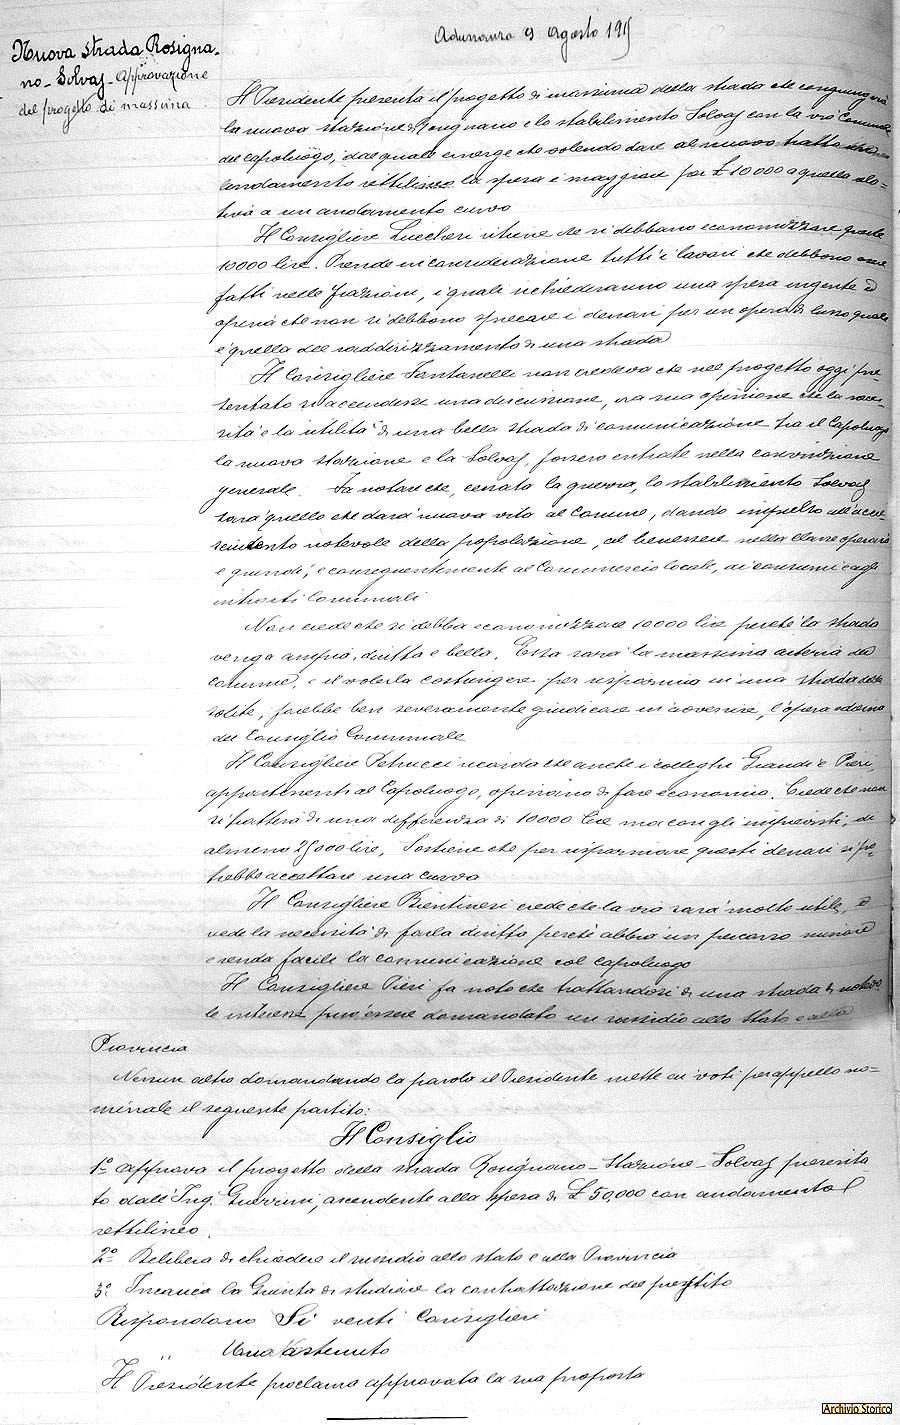 Adunanza 9 Agosto 1915
Nuova strada Rosigna-
no - Solvay - Approvazione
del progetto di massima
Il Presidente presenta il progetto di massima della strada che congiungerà
la nuova stazione di Rosignano e lo stabilimento Solvay con la via Comunale
del capoluogo, dal quale emerge che volendo dare al nuovo tratto
l'andamento rettilineo la spesa è maggiore per £ 10000 a quella rela-
tiva a un andamento curvo
Il Consigliere Luccheri ritiene che si debbano economizzare queste
10000 lire. Prende in considerazione tutti i lavori che debbono esser
fatti nelle frazioni, i quali richiederanno una spesa ingente ed
opina che non si debbono sprecare i denari per un opera di lusso quale
è quella del raddirizzamento di una strada
Il Consigliere Fantanelli non credeva che nel progetto oggi pre-
sentato si accendesse una discussione, era sua opinione che la neces-
sità e la utilità di una bella strada di comunicazione tra il Capoluogo
la nuova stazione e la Solvay, fossero entrate nella convinzione
generale. Fa notare che, cessata la guerra, lo stabilimento Solvay
sarà quello che darà nuova vita al Comune, dando impulso all'accre-
scimento notevole della popolazione, al benessere nella classe operaia
e quindi, e conseguentemente al Commercio locale, ai consumi e agli
introiti Comunali
Non crede che si debba economizzare 10000 lire perchè la strada
venga ampia, diritta e bella. Essa sarà la massima arteria del
Comune, e il volerla costringere per risparmio in una stradda delle
solite, farebbe ben severamente giudicare in avvenire, l'opera odierna
del Consiglio Comunale
Il Consigliere Petrucci ricorda che anche i colleghi Giandi e Pieri,
appartenenti al Capoluogo, opinano di fare economia. Crede che non
si tratterà di una differenza di 10000 lire ma con gli imprevisti, di
almeno 25000 lire. Sostiene che per risparmiare questi denari si po-
trebbe accettare una curva
Il Consigliere Bientinesi crede che la via sarà molto utile, e
vede la necessità di farla diritta perchè abbia un percorso minore
e renda facile la comunicazione col capoluogo
Il Consigliere Pieri fa noto che trattandosi di una strada di notevo-
le interesse può essere domandato un sussidio allo Stato e alla
Provincia
Nessun altro domandando la parola il Presidente mette ai voti per appello no-
minale il seguente partito:
Il Consiglio
1º Approva il progetto della strada Rosignano - Stazione - Solvay presenta-
to dall'Ing. Guerrini, ascendente alla spesa di £ 50,000 con andamento
rettilineo.
2º Delibera di chiedere il sussidio allo stato e alla Provincia
3º Incarica la Giunta di studiare la contrattazione del prestito
Rispondono Si venti Consiglieri
Uno astenuto
Il Presidente proclama approvata la sua proposta
Archivio Storico